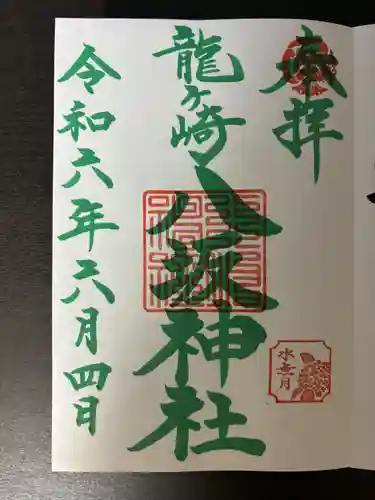 奉拝
龍ヶ崎
八坂神社
水無月
令和六年六月四日